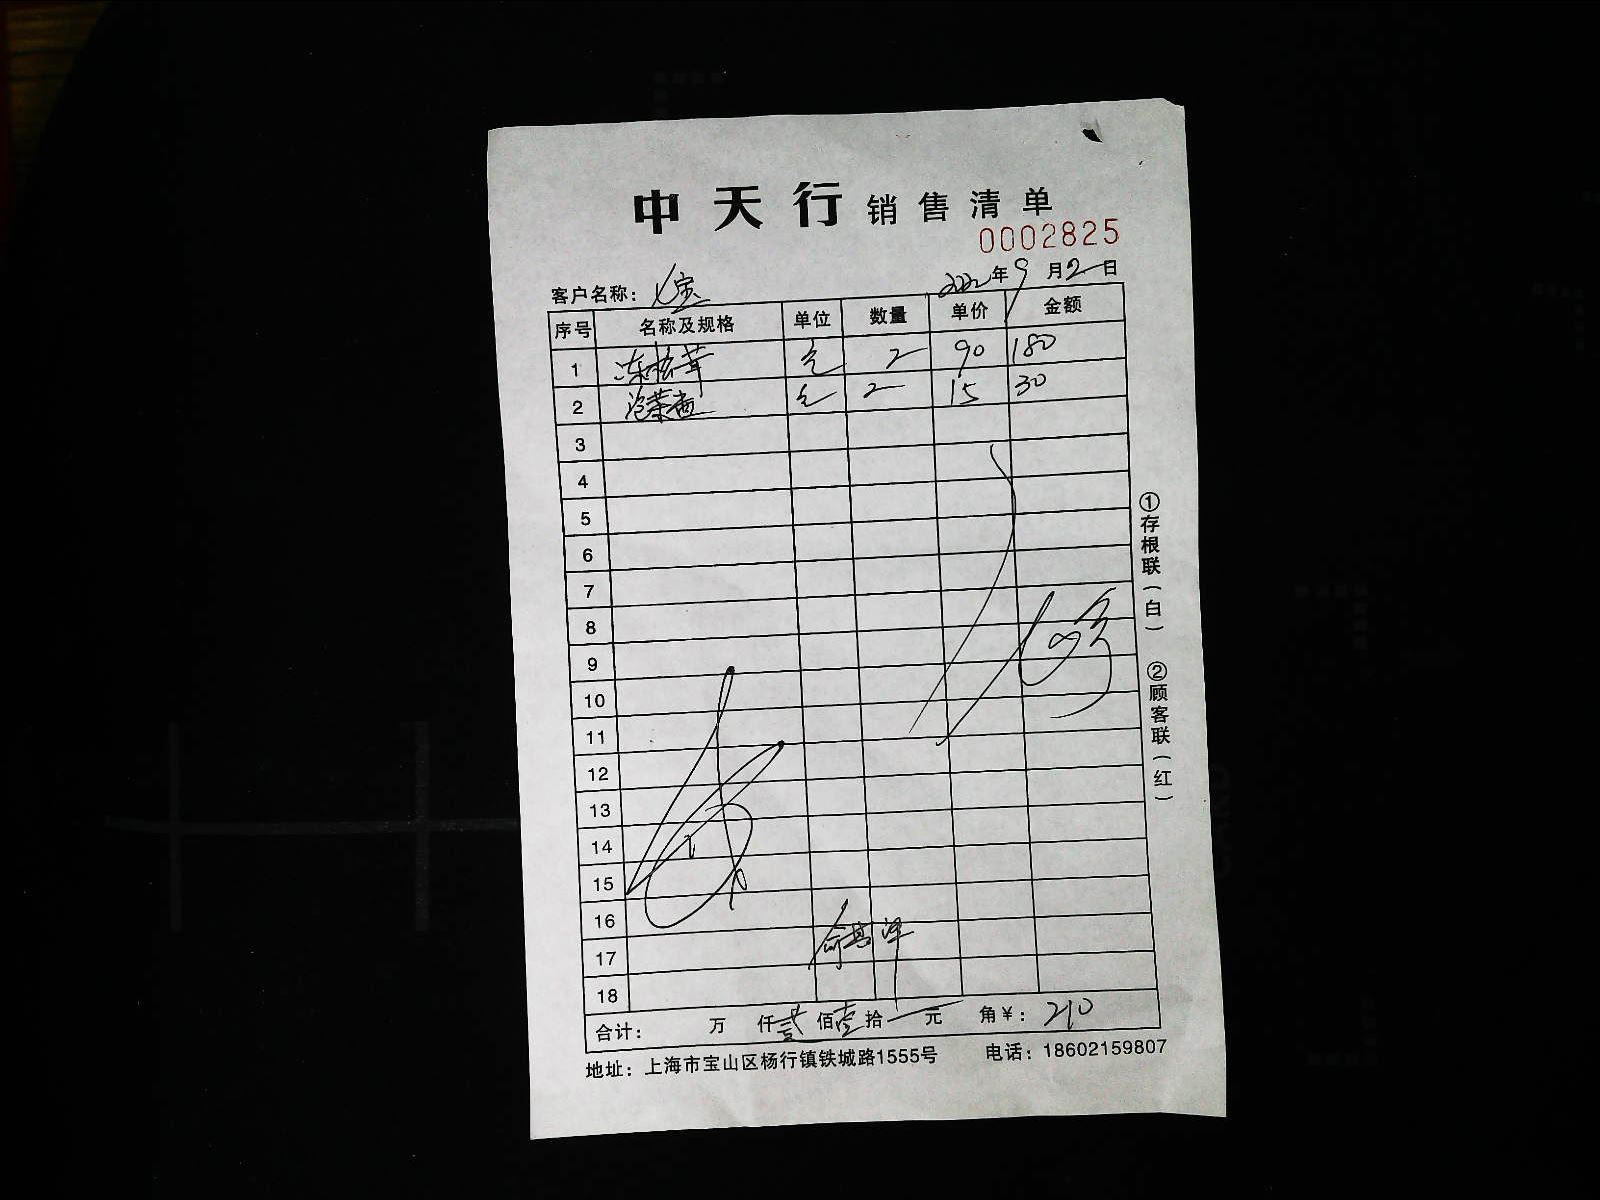 中天行 销售清单
0002825
客户名称： 七宝 2022年9月2日
序号 名称及规格 单位 数量 单价 金额
1 冻松茸 包 2 90 180
2 泡菜鱼 包 2 15 30
3
4
5
6
7
8
9
10
11
12
13
14
15
16
17
18
合计： 万 仟贰佰壹拾 元 角￥： 210
地址：上海市宝山区杨行镇铁城路1555号 电话：18602159807
①存根联(白) ②顾客联(红)